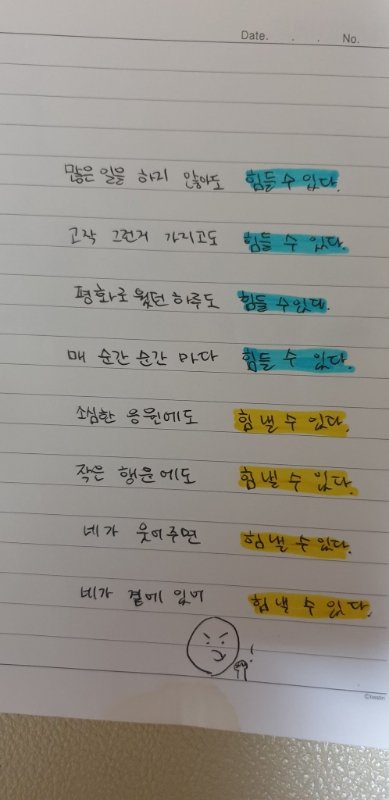 Date. . . No.
많은 일을 하지 않아도 힘들 수 있다.
고작 그런거 가지고도 힘들 수 있다.
평화로웠던 하루도 힘들 수 있다.
매 순간 순간 마다 힘들 수 있다.
소심한 응원에도 힘 낼 수 있다.
작은 행운에도 힘 낼 수 있다.
네가 웃어주면 힘 낼 수 있다.
네가 곁에 있어 힘 낼 수 있다.
!